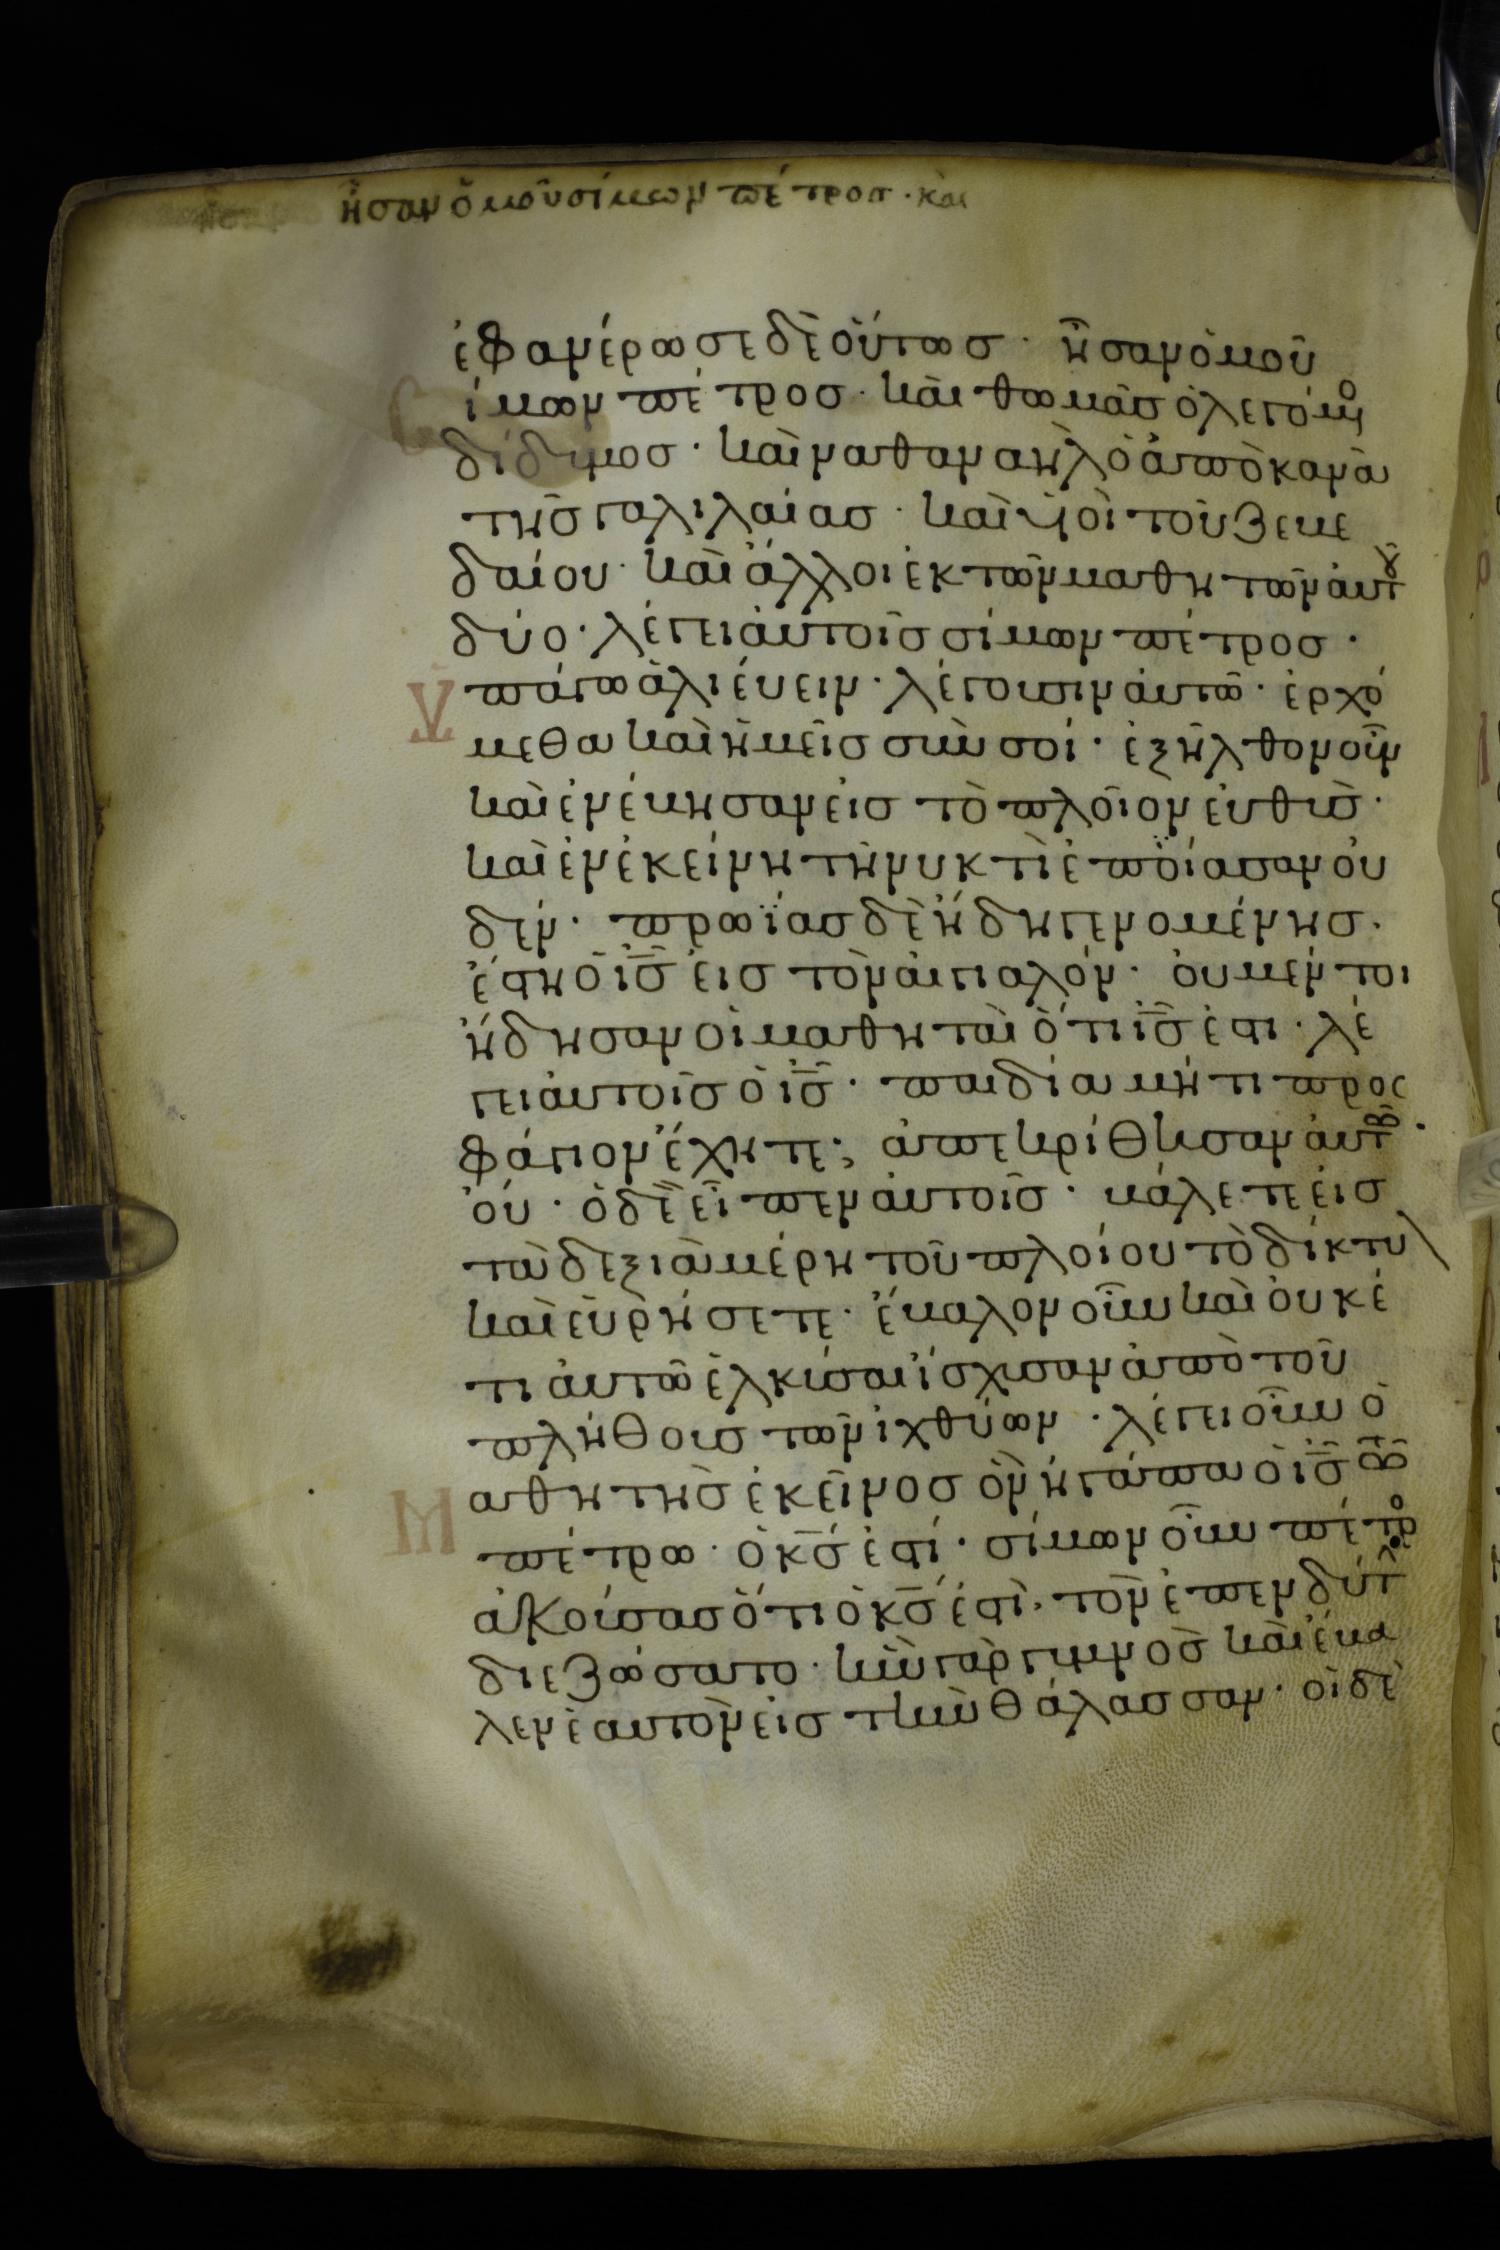 ἦσαν ὁμοῦ σίμων πέτροσ · και
ἐφανέρωσε δὲ οὕτωσ · ἦσαν ὁμοῦ
Σίμων πέτροσ · καὶ θωμᾶσ ὁ λεγόμεν
δίδυμοσ · καὶ ναθαναὴλ ὁ ἀπὸ κανᾶ
τῆσ γαλιλαίασ · καὶ ὑιοὶ τοῦ ζεβε
δαίου · καὶ ἄλλοι ἐκ τῶν μαθητῶν ἀυτ
δύο · λέγει ἀυτοῖσ σίμων πέτροσ ·
Ὑπάγω ἁλιέυειν · λέγουσιν ἀυτῶ · ἐρχό
μεθα καὶ ἡμεῖσ σὺν σοί · ἐξῆλθον οὖν
καὶ ἐνέβησαν εἰσ τὸ πλοῖον ἐυθὺσ ·
καὶ ἐν ἐκείνη τῆ νυκτὶ ἐπϊίασαν ὀυ
δέν · πρωϊασ δὲ ἤδη γενομένησ ·
ἔστη ὁ ισ εἰσ τὸν ἀιγιαλόν · ὀυ μέν τοι
ἤδησαν οἱ μαθηταὶ ὅτι ισ ἐστι · λέ
γει ἀυτοῖσ ὁ ισ · παιδία μή τι προσ
φάγιον ἔχητε; ἀπεκρίθησαν ἀυτ ·
ὀύ · ὁ δὲ εἶπεν ἀυτοῖσ · βάλετε ἐισ
τὰ δεξιὰ μέρη τοῦ πλοίου τὸ δίκτυ
καὶ εὑρήσετε · ἔβαλον οὖν καὶ ὀυκέ
τι ἀυτῶ ἑλκύσαι ἴσχυσαν ἀπὸ τοῦ
πλήθουσ τῶν ἰχθύων · λέγει οὖν ὁ
Μαθητὴσ ἐκεῖνοσ ὃν ἠγάπα ὁ ισ τ
πέτρω · ὁ κσ ἐστί · σίμων οὖν πέτρο
ἀκούσασ ὅτι ὁ κσ ἐστὶ · τὸν ἐπενδύτ
διεζώσατο · ἦν γὰρ γυμνὸσ καὶ ἔβα
λεν ἑαυτὸν εἰσ τὴν θάλασσαν · οἱ δὲ